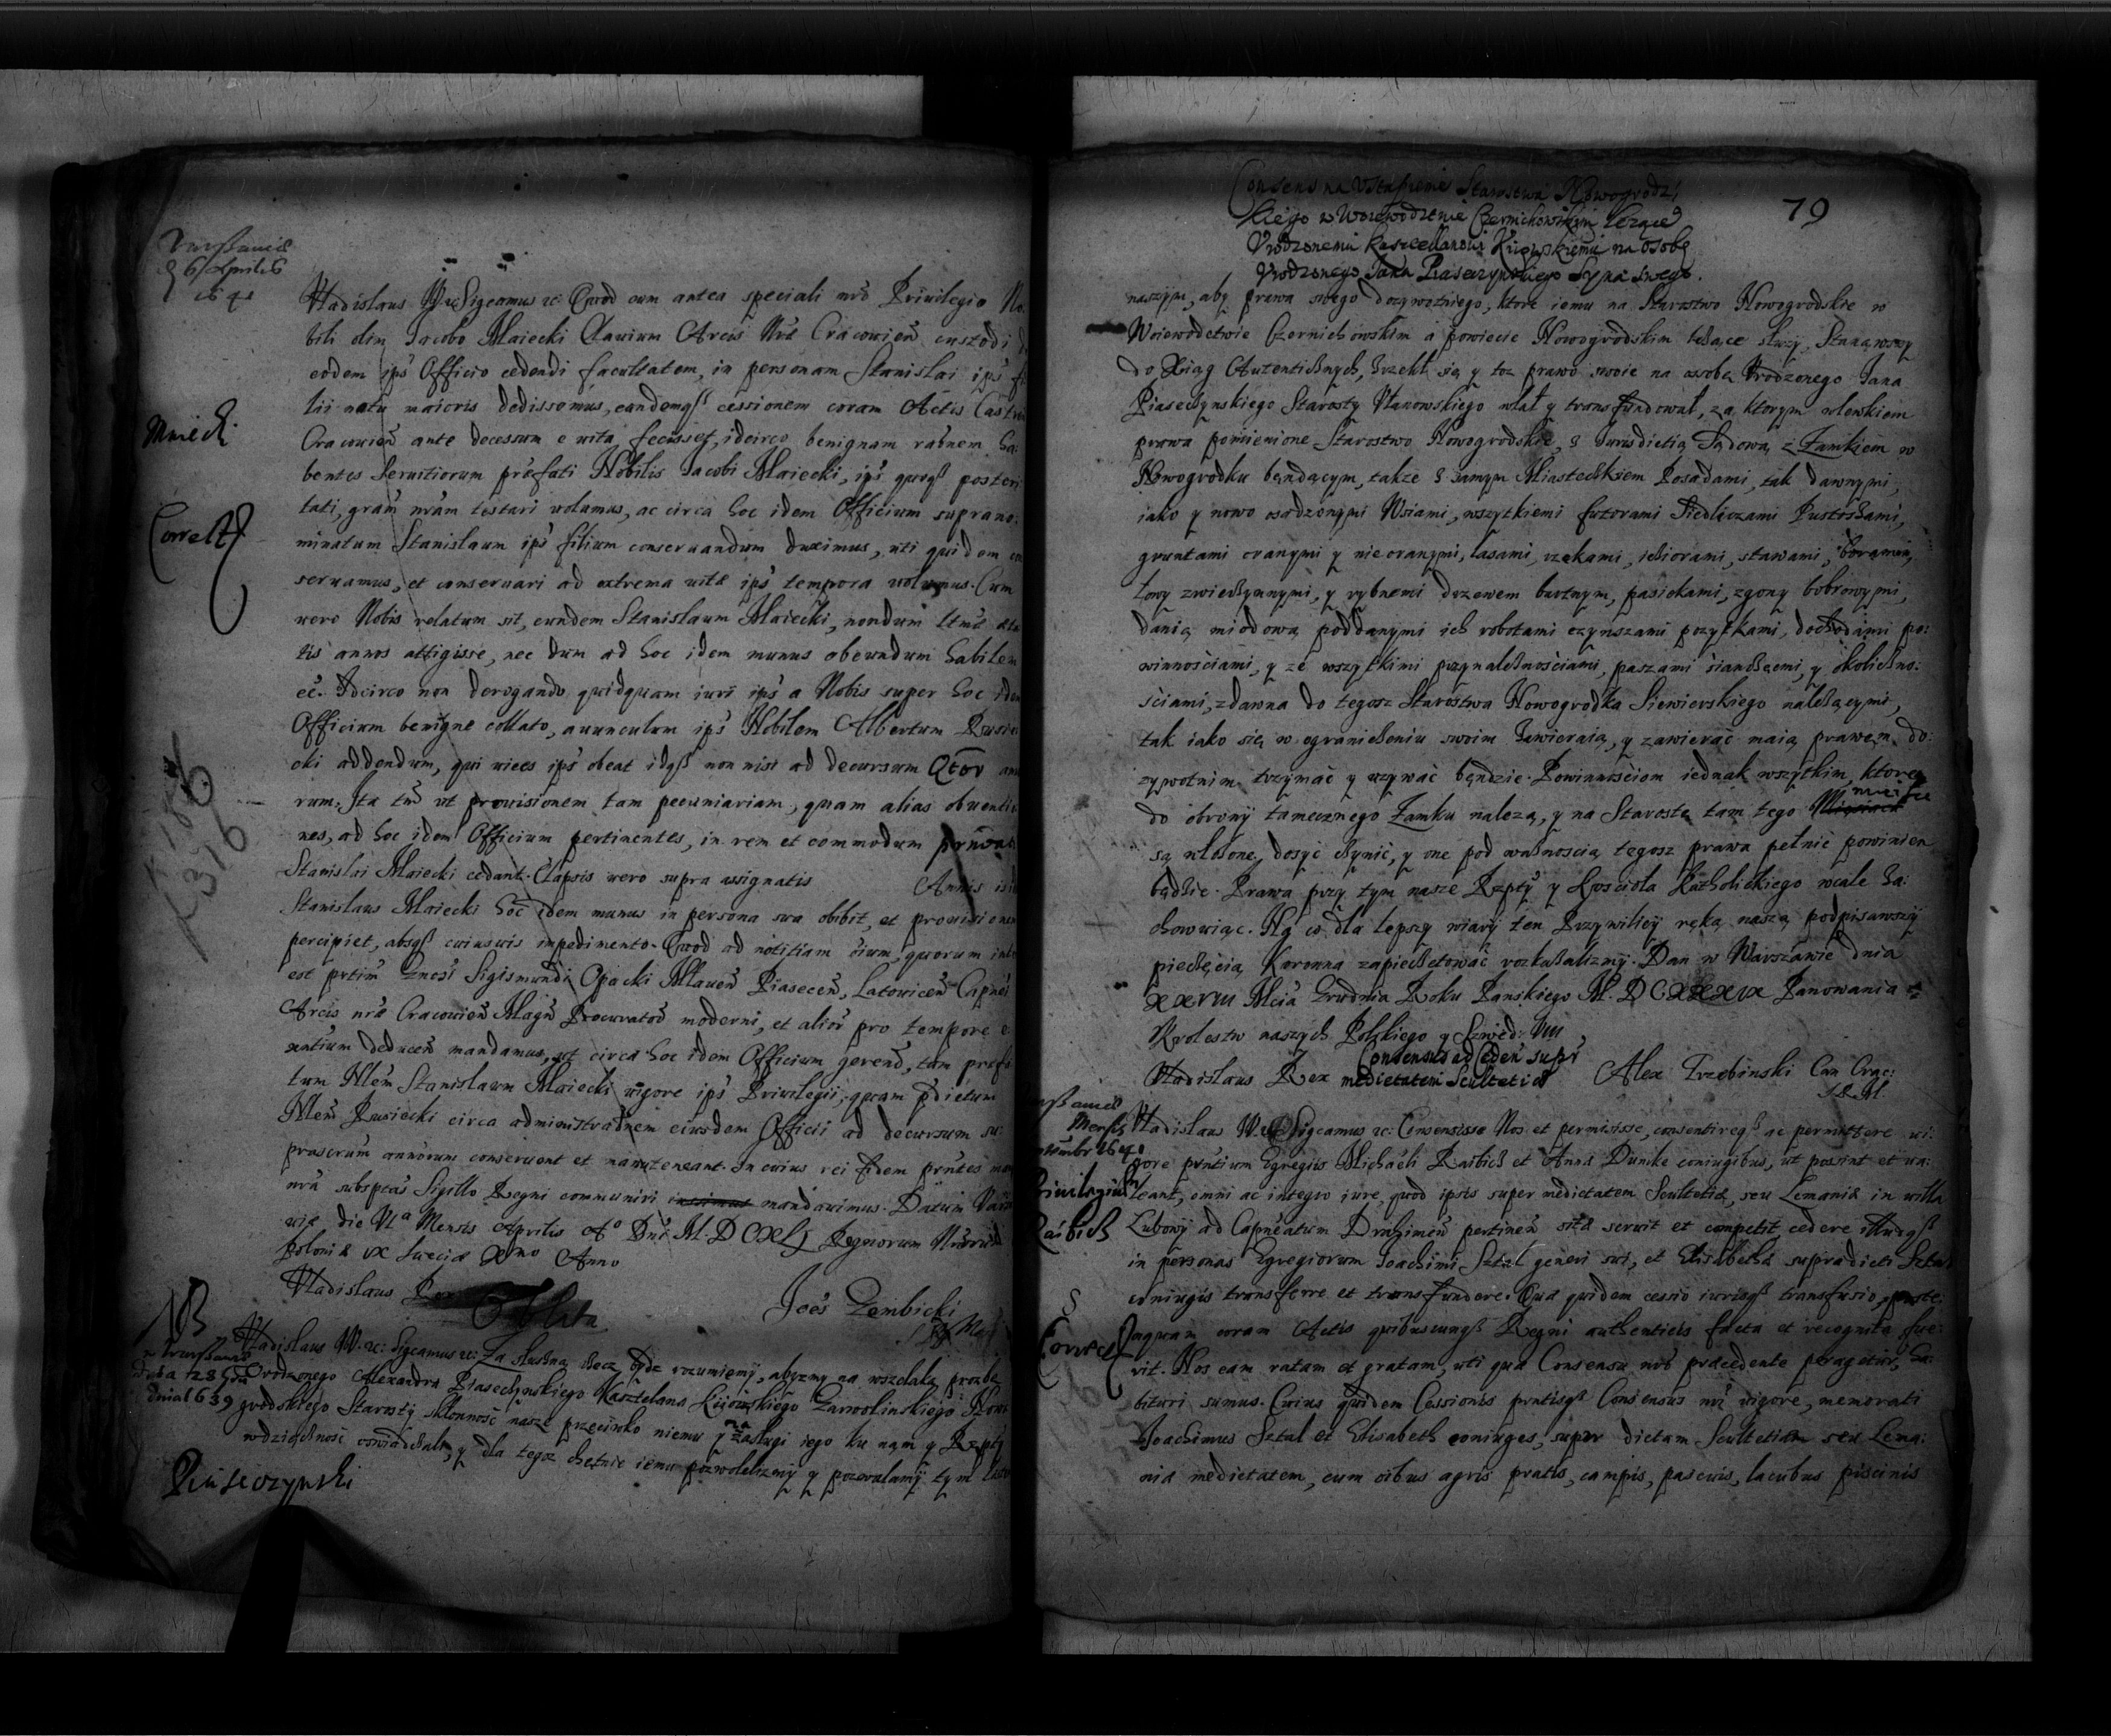 Varsaviae
d 6 Aprilis
1641
Vladislaus IV etc Sigcamus etc: Quod cum antea speciali nro Privilegio No:
bili olim Jacobo Maiecki Clavium Arcis Nrae Cracovien̄ custodi
eodem ips' Officio cedendi facultatem, in personam Stanislai ips' fi
lii natu maioris dedissemus, eandemqß cessionem coram Actis Castren
Maiecki
Cracovien̄ ante decessum e vita fecisset, idcirco benignam raōnem ha:
bentes servitiorum praefati Nobilis Jacobi Maiecki, ips' quoqß posteri
tati, grām nrām testari volumus, ac circa hoc idem Officium suprano:
Correct
minatum Stanislaum ips' filium conservandum duximus, uti quidem con
servamus, et conservari ad extrema vitae ips' tempora volumus. Cum
vero Nobis relatum sit, eundem Stanislaum Maiecki, nondum ltmae aeta
tis annos attigisse, nec dum ad hoc idem munus obeundum habilem
eē. Idcirco non derogando quidquam iuri ips' a Nobis super hoc idem
Officium benigne collato, avunculum ips' Nobilem Albertum Rusie
cki addendum, qui vices ips' obeat idqß non nisi ad decursum Qtōr an
rum. Ita tn̄ ut provisionem tam pecuniariam, quam alias obventio
nes, ad hoc idem Officium pertinentes, in rem et commodum
Stanislai Maiecki cedant. Elapsis vero supra assignatis Annis
Stanislaus Maiecki hoc idem munus in persona sua obibit, et provisionem
percipiet, absqß cuiusvis impedimento. Quod ad notitiam oīum, quorum int
est prtim Gnosi Sigismundi Opacki Mlaven̄ Piasecen̄, Latovicen̄ Capnei
Arcis nrae Cracovien̄ Magn̄ Procurator̄ moderni, et alior̄ pro tempore e
xntium deducen̄ mandamus, ut circa hoc idem Officium geren̄, tam praefa
tum Nlem Stanislaum Maiecki vigore ips' Privilegii, quam pdictum
Nlem Rusiecki circa administraōnem eiusdem Officii ad decursum su:
prascrum annorum conservent et manuteneant. In cuius rei fidem prntes manu
nrā subsptas Sigillo Regni communiri mandavimus. Datum Varsa
viae die VIa Mensis Aprilis Ao Dni M.DCXLI Regnorum Nrorum
Poloniae IX Sueciae Xmo Anno
Vladislaus Rex
Joēs Gembicki
Oblata
NB
Vladislaus IV. etc: Sigcamus etc: Za słuszną rzecz bydz rozumiemy, abyzmy na wszelaką prozbę
w Warszawie
dnia 28 Gru
dnia 1639
Urodzonego Alexandra Piaseczynskiego Kasztelana Kiiowskiego Nowo
grodskiego Starosty skłonność nasze przeciwko niemu y za zasługi iego ku nam y Rzpty
wdzięczność oswiadczali, y dla tegoz chętnie iemu pozwolilizmy y pozwalamy tym
Piaseczynski
79
Consens na Ustąpienie Starostwa Nowogrodz:
kiego w Woiewodztwie Czernichowskim lezącego
Urodzonemu Kasztellanowi Kiiowskiemu na osobę
Urodzonego Jana Piaseczynskiego Syna swego.
naszym, aby prawa swego dozywotniego, ktore iemu na Starostwo Nowogrodskie w
Woiewodztwie Czernichowskim a powiecie Nowogrodskim leżące służy. Stanąwszy
do Xiąg Autentichnych, zrzekł się y toz prawo swoie na osobę Urodzonego Jana
Piaseczynskiego Starosty Ulanowskiego wlał y transfundował, za ktorym wlewkiem
prawa pomienione Starostwo Nowogrodskie, z Jurisdictią Sądową z Zamkiem w
Nowogrodku bęndącym, takze z samym Miasteczkiem Posadami, tak dawnymi,
iako y nowo osadzonymi Wsiami, wszytkiemi futorami Siedliczami Pustoszami,
gruntami oranymi y nieoranymi, lasami, rzekami, ieziorami, stawami, borami,
łowy zwierzynnymi, y rybnemi drzewem bartnym, pasiekami, zgony bobrowymi,
danią miodową poddanymi ich robotami czynszami pozytkami, dochodami po:
winnościami, y ze wszytkimi przynależnościami, paszami sianożęcmi, y okolichno:
ściami, zdawna do tegosz Starostwa Nowogrodka Siewierskiego należącymi,
tak iako się w ograniczeniu swoim zawieraią, y zawierać maią prawem do:
zywotnim trzymać y uzywać będzie. Powinnościom iednak wszytkim, ktore
do obrony tamecznego Zamku nalezą, y na Starostę tam tego miejsca
są włożone, dosyć czynić, y one pod ważnoscią tegosz prawa pełnić powinien
będzie. Prawa przy tym nasze Rzpty y Kosciola Katholickiego wcale za:
chowuiąc. Na co dla lepszy wiary ten Przywiliey ręką naszą podpisawszy
pieczęcią Koronną zapieczetować rozkazalizmy. Dan w Warszawie dnia
XXVIII Mcia Grudnia Roku Panskiego M.DCXXXIX Panowania
Krolestw naszych Polskiego y Szwed: VIII
Vladislaus Rex
Alex Trzebinski Can Crac:
S R M.
Consensus ad Ceden̄ supr
medietatem Scultetiae
Mensis
1640
Vladislaus IV. etc Sigcamus etc: Consensisse Nos et permisisse, consentireqß ac permittere vi:
gore prntium Egregiis Michaeli Raśbich et Anna Dunike coniugibus, ut possint et va:
Privilegium
Raśbich
leant, omni ac integro iure, quod ipsis super medietatem Scultetiae, seu Lemaniae in villa
Lubowy ad Capneatum Drahimen̄ pertinen̄ sitae servit et competit, cedere
in personas Egregiorum Joachimi Sztal generi sui, et Elisabethae supradicti Sztal
coniugis transferre et transfundere. Quae quidem cessio iurisqß transfusio, poste:
aquam coram Actis quibuscunqß Regni authenticis facta et recognita fue:
Correct
rit. Nos eam ratam et gratam, uti quae Consensu nro praecedente peragetur, ha:
bituri sumus. Cuius quidem Cessionis prntisqß Consensus nri vigore, memorati
Joachimus Sztal et Elisabeth coniuges, super dictam Scultetiam seu Lema:
nia medietatem, cum oībus agris pratis, campis, pascuis, lacubus piscinis